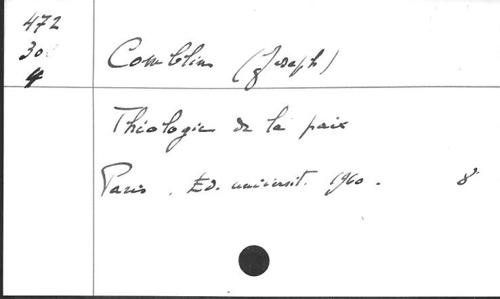 472
30
4
Comblin (Joseph)
Théologie de la paix
Paris. Ed. universit. 1960. 8°